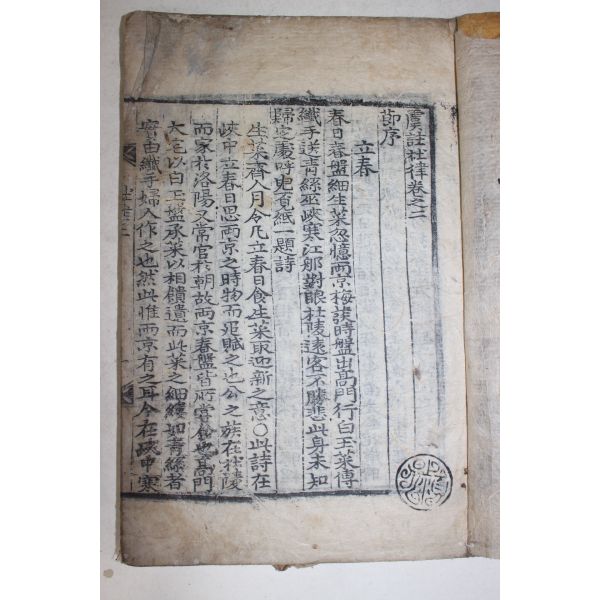 虞註杜律卷之二
節序
立春
春日春盤細生菜忽憶兩京梅發時盤出高門行白玉菜傳
纖手送青絲巫峽寒江那對眼杜陵遠客不勝悲此身未知
歸定處呼兒覓紙一題詩
生菜齊人月令凡立春日食生菜取迎新之意〇此詩在
峽中立春日思兩京之時物而足賦之也公之族在杜陵
而家於洛陽又常官於朝故兩京春盤皆所嘗食也高門
大宅以白玉盤承菜以相饋遺而此菜之細縷如青絲者
寔由纖手婦人作之也然此惟兩京有之耳今在峽中寒